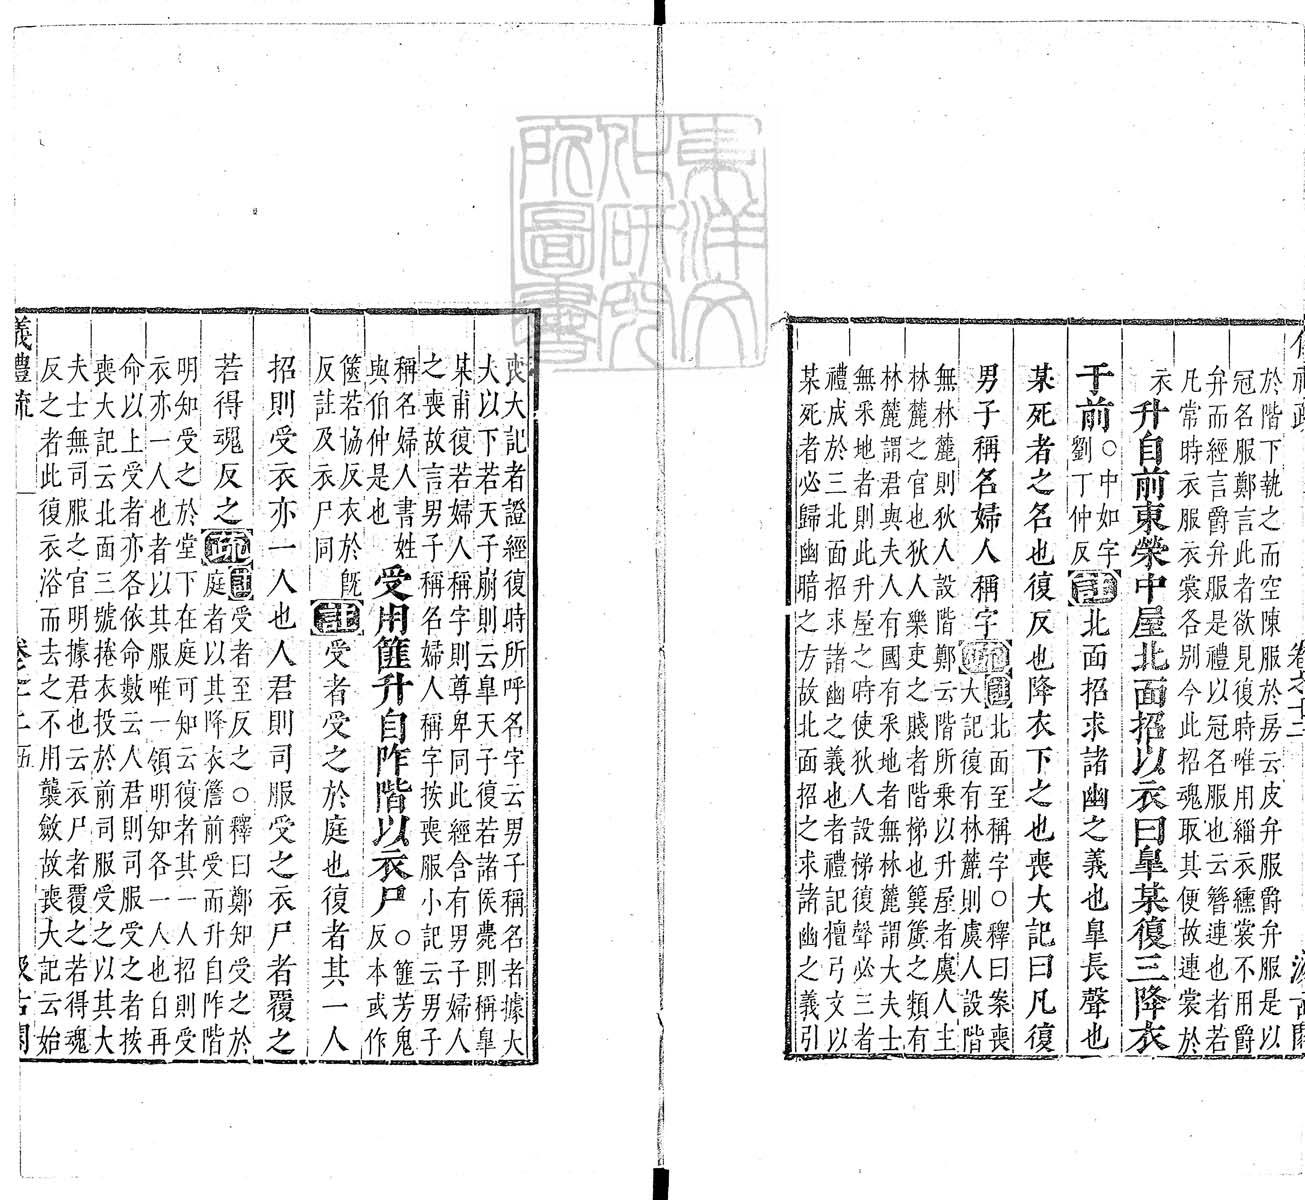 於階下執之而空陳服於房云皮弁服爵弁服是以
冠名服鄭言此者欲見復時唯用緇衣纁裳不用爵
弁而經言爵弁服是禮以冠名服也云簪連也者若
凡常時衣服衣裳各別今此招魂取其便故連裳於
衣升自前東榮中屋北面招以衣曰皐某復三降衣
于前○中如字劉丁仲反註北面招求諸幽之義也皐長聲也
某死者之名也復反也降衣下之也喪大記曰凡復
男子稱名婦人稱字疏註北面至稱字○釋曰案喪
大記復有林麓則虞人設階
無林麓則狄人設階鄭云階所乘以升屋者虞人主
林麓之官也狄人樂吏之賤者階梯也簨簴之類有
林麓謂君與夫人有國有采地者無林麓謂大夫士
無采地者則此升屋之時使狄人設梯復聲必三者
禮成於三北面招求諸幽之義也者禮記檀弓文以
某死者必歸幽暗之方故北面招之求諸幽之義引
喪大記者證經復時所呼名字云男子稱名者據大
夫以下若天子崩則云皐天子復若諸侯薨則稱皐
某甫復若婦人稱字則尊卑同此經含有男子婦人
之喪故言男子稱名婦人稱字按喪服小記云男子
稱名婦人書姓
與伯仲是也受用篚升自阼階以衣尸○篚芳鬼
反本或作
篋若協反衣於旣
反註及衣尸同註受者受之於庭也復者其一人
招則受衣亦一人也人君則司服受之衣尸者覆之
若得魂反之疏註受者至反之○釋曰鄭知受之於
庭者以其降衣簷前受而升自阼階
明知受之於堂下在庭可知云復者其一人招則受
衣亦一人也者以其服唯一領明知各一人也白再
命以上受者亦各依命數云人君則司服受之者按
喪大記云北面三號捲衣投於前司服受之以其大
夫士無司服之官明據君也云衣尸者覆之若得魂
反之者此復衣浴而去之不用襲斂故喪大記云始
儀禮疏 卷之十二 五 汲古閣
東洋文化研究所圖書